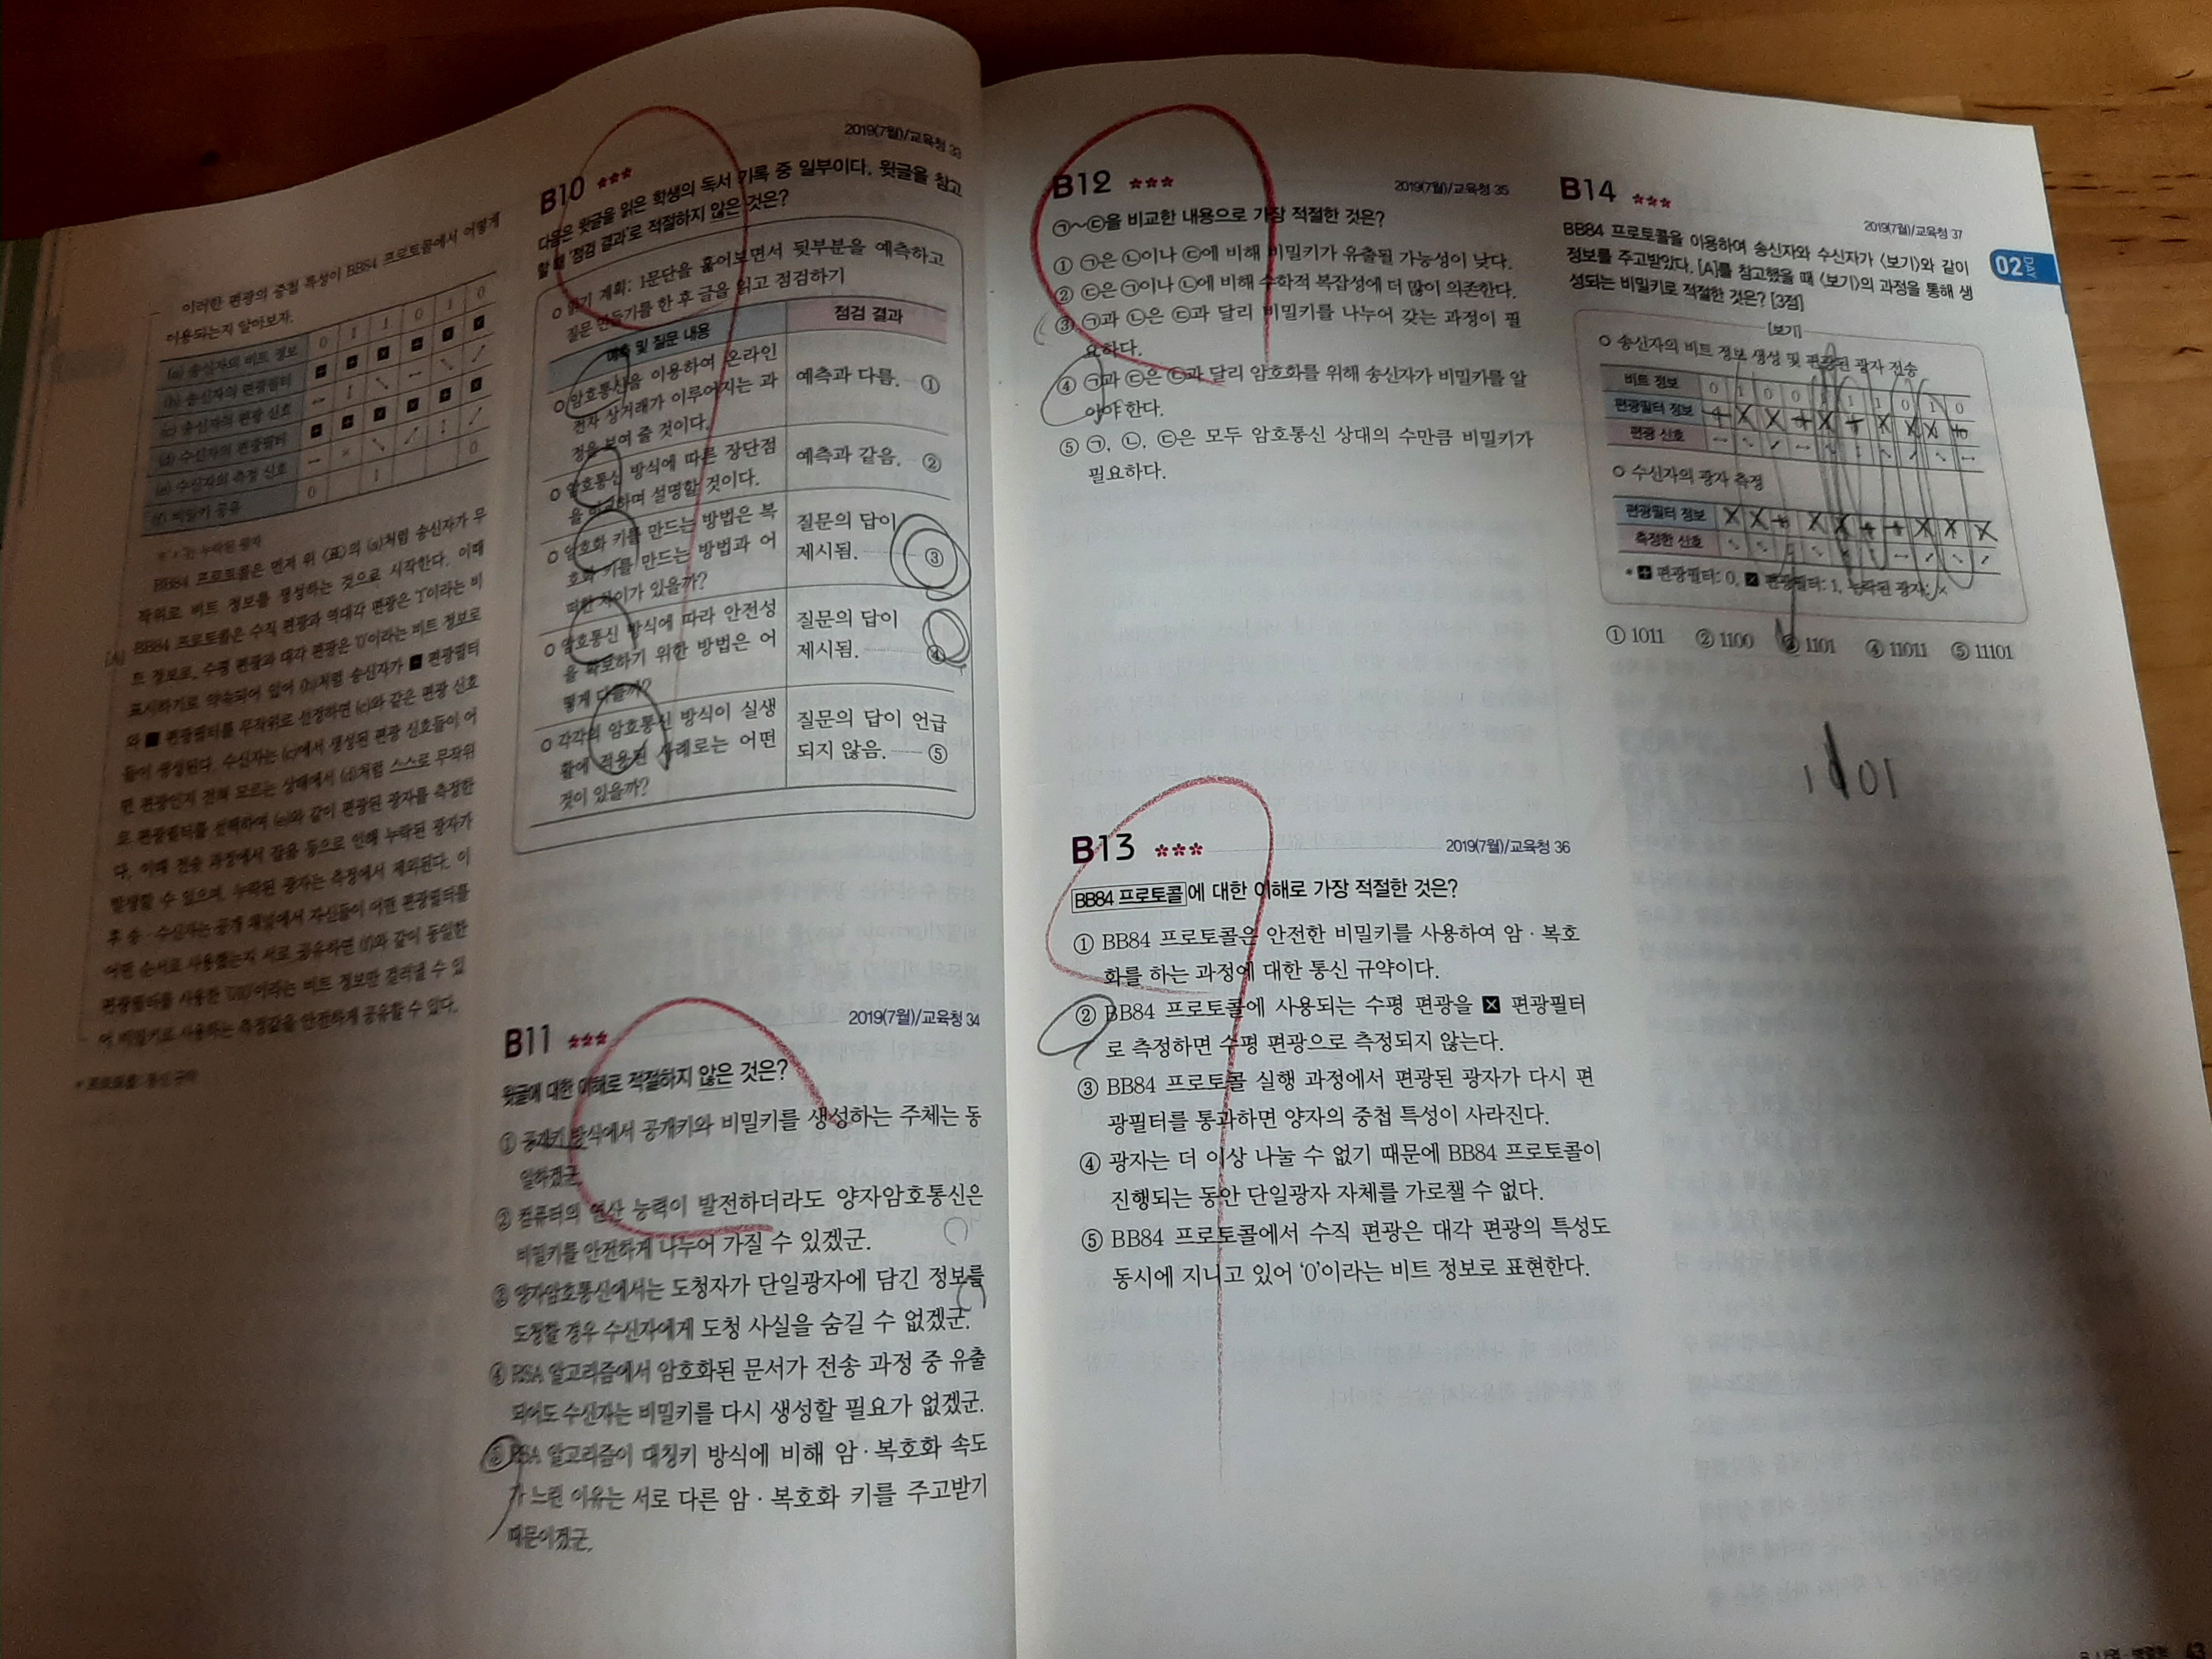 이러한 편광의 중첩 특성이 BB84 프로토콜에서 어떻게
이용되는지 알아보자.
(a) 송신자의 비트 정보 0 1 1 0 1 0
(b) 송신자의 편광필터
(c) 송신자의 편광 신호
(d) 수신자의 편광필터
(e) 수신자의 측정 신호
(f) 비밀키 공유 0 1 0
BB84 프로토콜은 먼저 위 〈표〉의 (a)처럼 송신자가 무
작위로 비트 정보를 생성하는 것으로 시작한다. 이때
[A] BB84 프로토콜은 수직 편광과 역대각 편광은 '1'이라는 비
트 정보로, 수평 편광과 대각 편광은 '0'이라는 비트 정보로
표시하기로 약속되어 있어 (b)처럼 송신자가 + 편광필터
와 × 편광필터를 무작위로 선정하면 (c)와 같은 편광 신호
들이 생성된다. 수신자는 (c)에서 생성된 편광 신호들이 어
떤 편광인지 전혀 모르는 상태에서 (d)처럼 스스로 무작위
로 편광필터를 선택하여 (e)와 같이 편광된 광자를 측정한
다. 이때 전송 과정에서 잡음 등으로 인해 누락된 광자가
발생할 수 있으며, 누락된 광자는 측정에서 제외된다. 이
후 송·수신자는 공개 채널에서 자신들이 어떤 편광필터를
어떤 순서로 사용했는지 서로 공유하면 (f)와 같이 동일한
편광필터를 사용한 이라는 비트 정보만 걸러낼 수 있
어 비밀키로 사용하는 측정값을 안전하게 공유할 수 있다.
* 프로토콜: 통신 규약
2019(7월)/교육청 33
B10 ***
다음은 윗글을 읽은 학생의 독서 기록 중 일부이다. 윗글을 참고
할 때 '점검 결과'로 적절하지 않은 것은?
○ 읽기 계획: 1문단을 훑어보면서 뒷부분을 예측하고
질문 만들기를 한 후 글을 읽고 점검하기
예측 및 질문 내용 점검 결과
○ 암호통신을 이용하여 온라인
전자 상거래가 이루어지는 과
정을 보여 줄 것이다.
예측과 다름. ①
○ 암호통신 방식에 따른 장단점
을 비교하며 설명할 것이다.
예측과 같음. ②
○ 암호화 키를 만드는 방법은 복
호화 키를 만드는 방법과 어
떠한 차이가 있을까?
질문의 답이
제시됨. ③
○ 암호통신 방식에 따라 안전성
을 확보하기 위한 방법은 어
떻게 다를까?
질문의 답이
제시됨. ④
○ 각각의 암호통신 방식이 실생
활에 적용된 사례로는 어떤
것이 있을까?
질문의 답이 언급
되지 않음. ⑤
B11 ***
2019(7월)/교육청 34
윗글에 대한 이해로 적절하지 않은 것은?
① 공개키 방식에서 공개키와 비밀키를 생성하는 주체는 동
일하겠군.
② 컴퓨터의 연산 능력이 발전하더라도 양자암호통신은
비밀키를 안전하게 나누어 가질 수 있겠군.
③ 양자암호통신에서는 도청자가 단일광자에 담긴 정보를
도청할 경우 수신자에게 도청 사실을 숨길 수 없겠군.
④ RSA 알고리즘에서 암호화된 문서가 전송 과정 중 유출
되어도 수신자는 비밀키를 다시 생성할 필요가 없겠군.
⑤ RSA 알고리즘이 대칭키 방식에 비해 암·복호화 속도
가 느린 이유는 서로 다른 암·복호화 키를 주고받기
때문이겠군.
B12 ***
2019(7월)/교육청 35
㉠~㉢을 비교한 내용으로 가장 적절한 것은?
① ㉠은 ㉡이나 ㉢에 비해 비밀키가 유출될 가능성이 낮다.
② ㉢은 ㉠이나 ㉡에 비해 수학적 복잡성에 더 많이 의존한다.
③ ㉠과 ㉡은 ㉢과 달리 비밀키를 나누어 갖는 과정이 필
요하다.
④ ㉠과 ㉢은 ㉡과 달리 암호화를 위해 송신자가 비밀키를 알
아야 한다.
⑤ ㉠, ㉡, ㉢은 모두 암호통신 상대의 수만큼 비밀키가
필요하다.
B13 ***
2019(7월)/교육청 36
BB84 프로토콜에 대한 이해로 가장 적절한 것은?
① BB84 프로토콜은 안전한 비밀키를 사용하여 암·복호
화를 하는 과정에 대한 통신 규약이다.
② BB84 프로토콜에 사용되는 수평 편광을 × 편광필터
로 측정하면 수평 편광으로 측정되지 않는다.
③ BB84 프로토콜 실행 과정에서 편광된 광자가 다시 편
광필터를 통과하면 양자의 중첩 특성이 사라진다.
④ 광자는 더 이상 나눌 수 없기 때문에 BB84 프로토콜이
진행되는 동안 단일광자 자체를 가로챌 수 없다.
⑤ BB84 프로토콜에서 수직 편광은 대각 편광의 특성도
동시에 지니고 있어 '0'이라는 비트 정보로 표현한다.
B14 ***
2019(7월)/교육청 37
BB84 프로토콜을 이용하여 송신자와 수신자가 〈보기〉와 같이
정보를 주고받았다. [A]를 참고했을 때 〈보기〉의 과정을 통해 생
성되는 비밀키로 적절한 것은? [3점]
[보기]
○ 송신자의 비트 정보 생성 및 편광된 광자 전송
비트 정보 0 1 0 0 1 1 0 1 0
편광필터 정보
편광 신호
○ 수신자의 광자 측정
편광필터 정보
측정한 신호
* + 편광필터: 0, × 편광필터: 1, 누락된 광자: ×
① 1011 ② 1100 ③ 1101 ④ 11011 ⑤ 11101
02 DAY